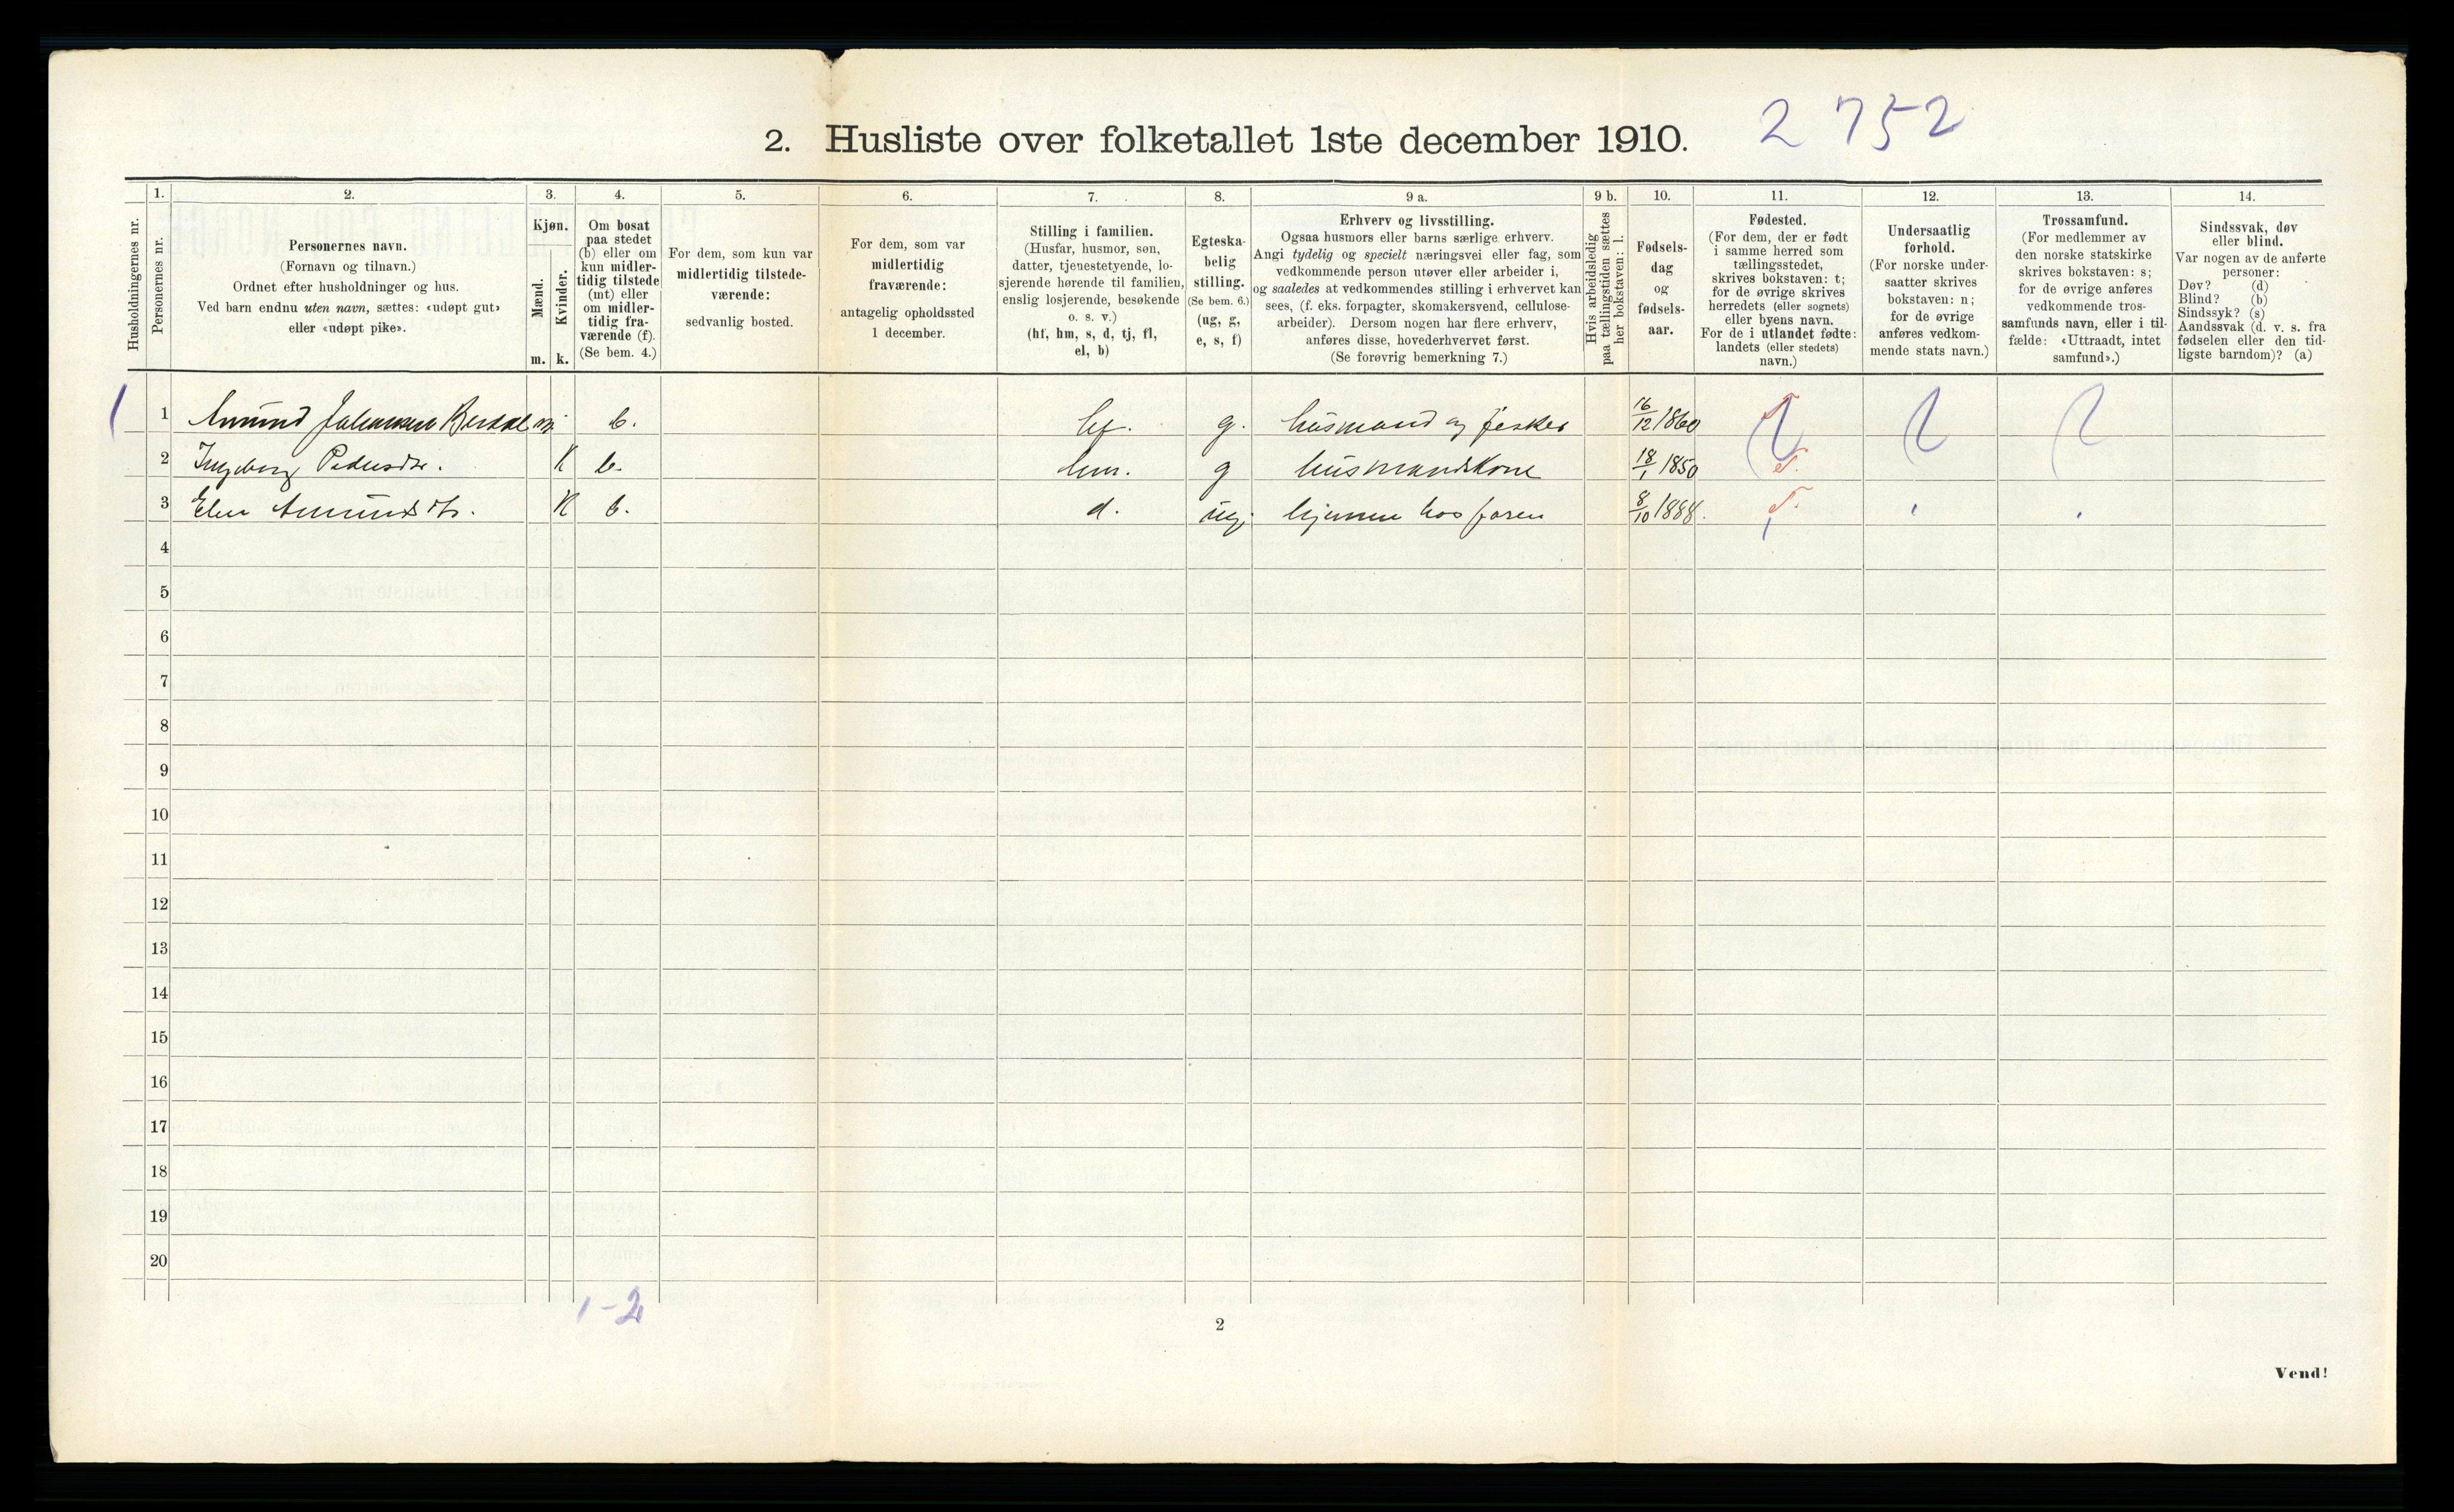 2. Husliste over folketallet 1ste december 1910. 2 752
Husholdningernes nr.
1.
Personernes nr.
2.
Personernes navn.
(Fornavn og tilnavn.)
Ordnet efter husholdninger og hus.
Ved barn endnu uten navn, sættes: «udøpt gut»
eller «udøpt pike».
3.
Kjøn.
Mænd.
Kvinder.
m. k.
4.
Om bosat
paa stedet
(b) eller om
kun midler-
tidig tilstede
(mt) eller
om midler-
tidig fra-
værende (f).
(Se bem. 4.)
5.
For dem, som kun var
midlertidig tilstede-
værende:
sedvanlig bosted.
6.
For dem, som var
midlertidig
fraværende:
antagelig opholdssted
1 december.
7.
Stilling i familien.
(Husfar, husmor, søn,
datter, tjenestetyende, lo-
sjerende hørende til familien,
enslig losjerende, besøkende
o. s. v.)
(hf, hm, s, d, tj, fl,
el, b)
8.
Egteska-
belig
stilling.
(Se bem. 6.)
(ug, g,
e, s, f)
9 a.
Erhverv og livsstilling.
Ogsaa husmors eller barns særlige erhverv.
Angi tydelig og specielt næringsvei eller fag, som
vedkommende person utøver eller arbeider i,
og saaledes at vedkommendes stilling i erhvervet kan
sees, (f. eks. forpagter, skomakersvend, cellulose-
arbeider). Dersom nogen har flere erhverv,
anføres disse, hovederhvervet først.
(Se forøvrig bemerkning 7.)
9 b.
Hvis arbeidsledig
paa tællingstiden sættes
her bokstaven: l.
10.
Fødsels-
dag
og
fødsels-
aar.
11.
Fødested.
(For dem, der er født
i samme herred som
tællingsstedet,
skrives bokstaven: t;
for de øvrige skrives
herredets (eller sognets)
eller byens navn.
For de i utlandet fødte:
landets (eller stedets)
navn.)
12.
Undersaatlig
forhold.
(For norske under-
saatter skrives
bokstaven: n;
for de øvrige
anføres vedkom-
mende stats navn.)
13.
Trossamfund.
(For medlemmer av
den norske statskirke
skrives bokstaven: s;
for de øvrige anføres
vedkommende tros-
samfunds navn, eller i til-
fælde: «Uttraadt, intet
samfund».)
14.
Sindssvak, døv
eller blind.
Var nogen av de anførte
personer:
Døv? (d)
Blind? (b)
Sindssyk? (s)
Aandssvak (d. v. s. fra
fødselen eller den tid-
ligste barndom)? (a)
1 1 Amund Johansen m. b. hf. g. husmand og fisker 16/12 1860 T
2 Ingeborg Pedersdtr. K b. hm. g husmandskone 18/1 1850 T.
3 Elen Amundsdtr. K b. d. ug. hjemme hos faren 8/10 1888. T.
4
5
6
7
8
9
10
11
12
13
14
15
16
17
18
19
20
1-2
2
Vend!